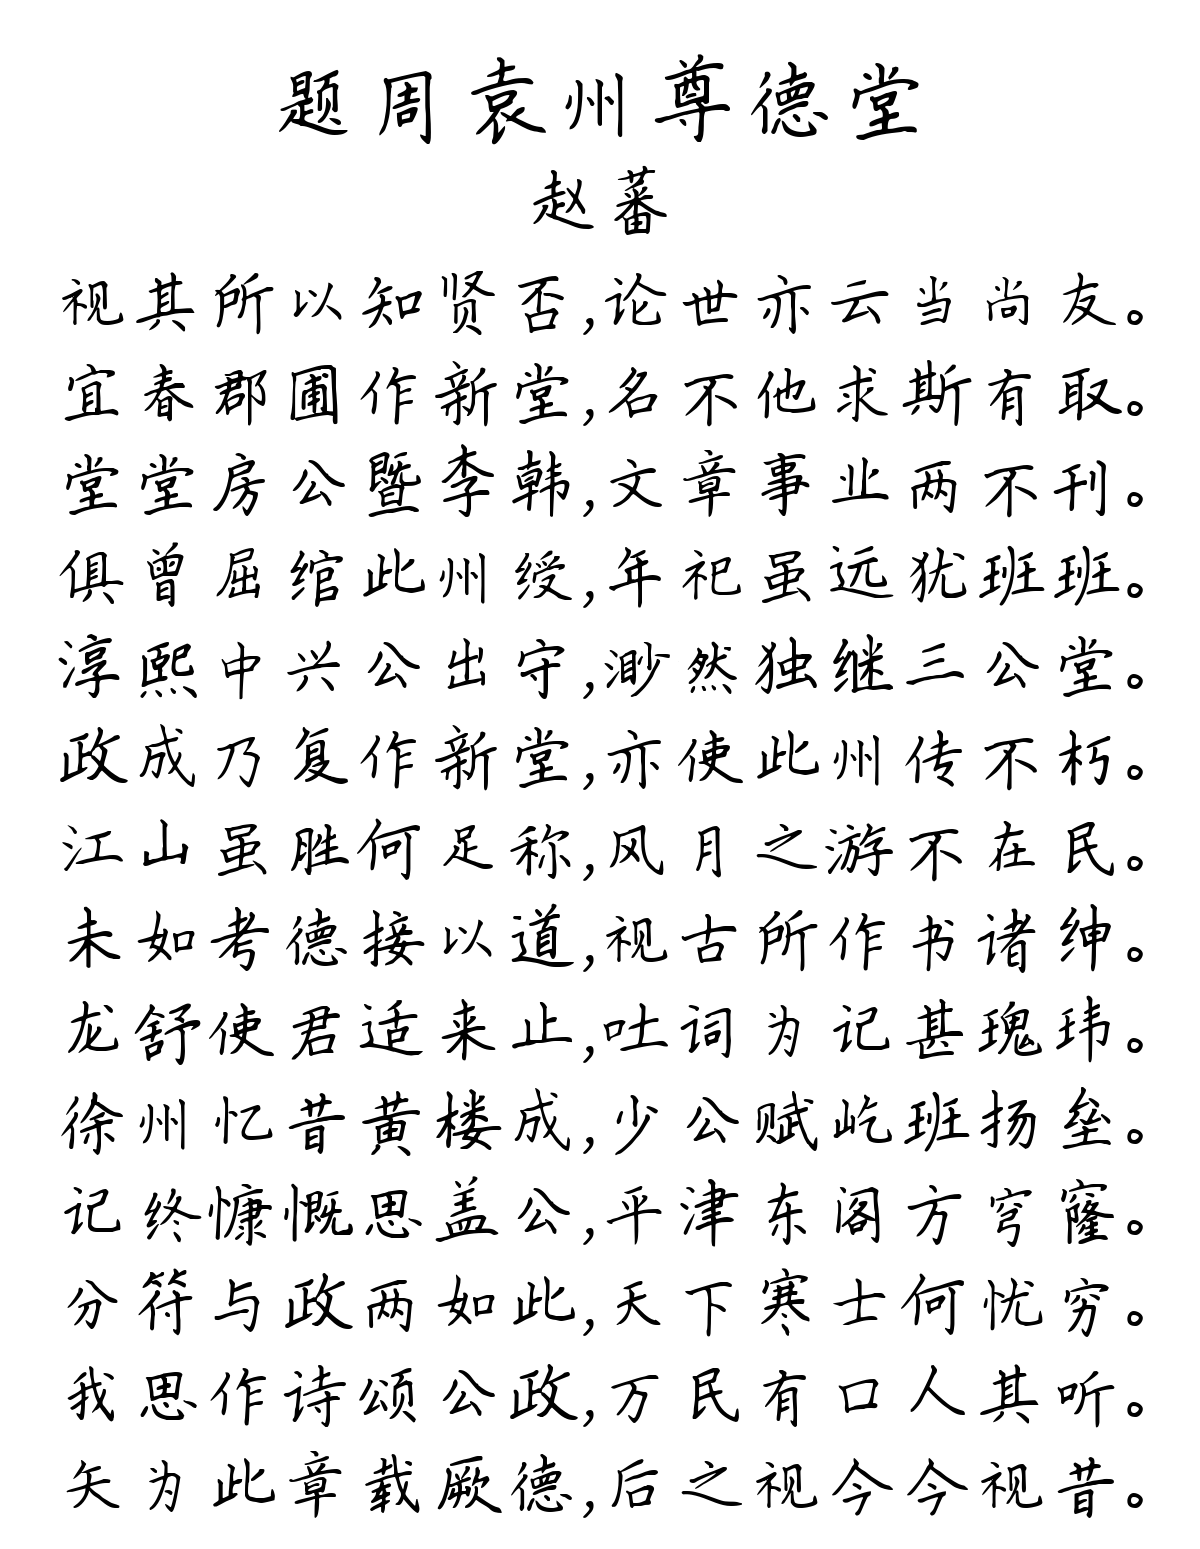 题周袁州尊德堂
赵蕃
视其所以知贤否,论世亦云当尚友。
宜春郡圃作新堂,名不他求斯有取。
堂堂房公暨李韩,文章事业两不刊。
俱曾屈绾此州绶,年祀虽远犹班班。
淳熙中兴公出守,渺然独继三公堂。
政成乃复作新堂,亦使此州传不朽。
江山虽胜何足称,风月之游不在民。
未如考德接以道,视古所作书诸绅。
龙舒使君适来止,吐词为记甚瑰玮。
徐州忆昔黄楼成,少公赋屹班扬垒。
记终慷慨思盖公,平津东阁方穹窿。
分符与政两如此,天下寒士何忧穷。
我思作诗颂公政,万民有口人其听。
矢为此章载厥德,后之视今今视昔。